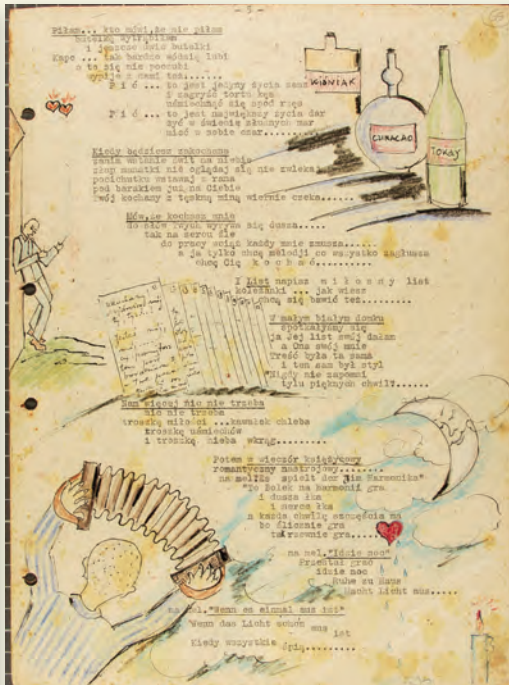 - 5 -
Piłam... kto mówi,że nie piłam
i jeszcze dwie butelki
Kapo ... tak bardzo wódzię lubi
wypije z nami też.......
P i ć ... to jest jedyny życia sens
i zagryść tortu kęs
uśmiechnąć się spod rzęs
P i ć ... to jest największy życia dar
żyć w świecie złudnych mar
mieć w sobie czar..........
WIŚNIAK
CURACAO
TOKAY
Kiedy będziesz zakochana
zanim wstanie świt na niebie
złap manatki nie oglądaj się nie zwlekaj
pocichutku wstawaj z rana
pod barakiem już na Ciebie
Twój kochany z tęskną miną wiernie czeka.....
Mów,że kochasz mnie
do słów Twych wyrywa się dusza.....
tak na sercu źle
do pracy wciąż każdy mnie zmusza......
a ja tylko chcę melodji co wszystko zagłusza
chcę Cię k o c h a ć..........
I List napisz m i ł o s n y list
koleżanki ... jak wiesz
chcą się bawić też.........
W małym białym domku
spotkałyśmy się
ja Jej list swój dałam
a Ona swój mnie
Treść była ta sama
i ten sam był styl
"Nigdy nie zapomni
tylu pięknych chwil".......
Nam więcej nic nie trzeba
nic nie trzeba
troszkę miłości ...kawałek chleba
troszkę uśmiechów
i troszkę nieba wkrąg.........
Potem w wieczór księżycowy
romantyczny nastrojowy........
"To Bolek na harmonii gra
i dusza łka
i serce łka
a każda chwilę szczęścia ma
bo ślicznie gra
na mel."Idzie noc"
Przestań grać
idzie noc
Ruhe zu Haus
Macht Licht aus.....
na mel."Wenn es einmal aus ist"
Wenn das Licht schon aus
ist
Kiedy wszystkie śpią.........